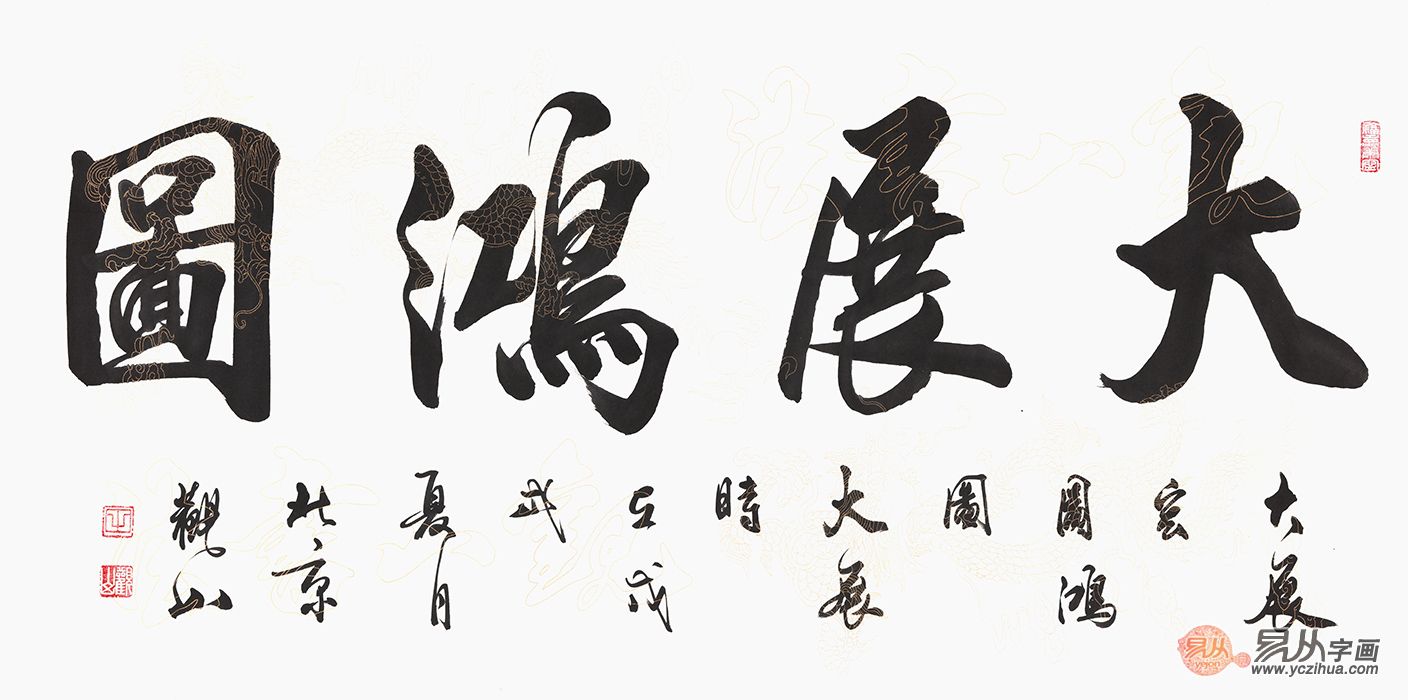 大展鴻圖
大展
宏
圖鴻
圖
大展
時
在戊
戌
夏月
北京
觀山
易从
yejon
易从字画
www.yczihua.com